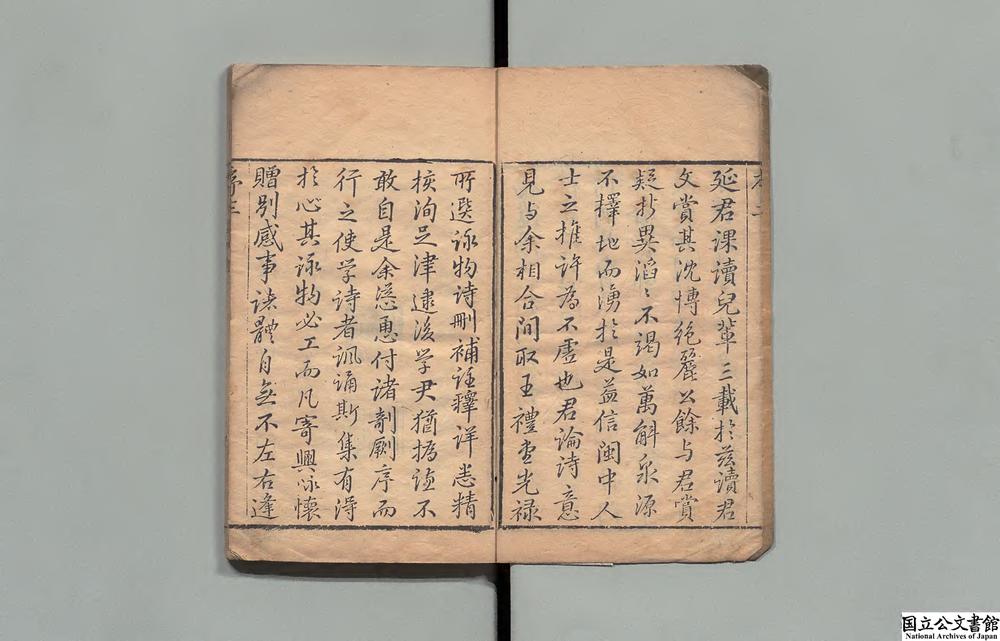 延君課讀兒輩三載於茲讀君
文賞其沈博絕麗公餘与君賞
疑抄異滔〻不竭如萬斛泉源
不擇地而湧於是益信閩中人
士之推許為不虛也君論詩意
見与余相合间取王禮堂光祿
所選詠物詩刪補註釋详悉精
核洵足津逮後学尹猶撝謙不
敢自是余慫恿付诸剞劂序而
行之使学詩者諷誦斯集有淂
於心其詠物必工而凡寄興咏懷
贈别感事诸體自無不左右逢
序三
国立公文書館
National Archives of Japan